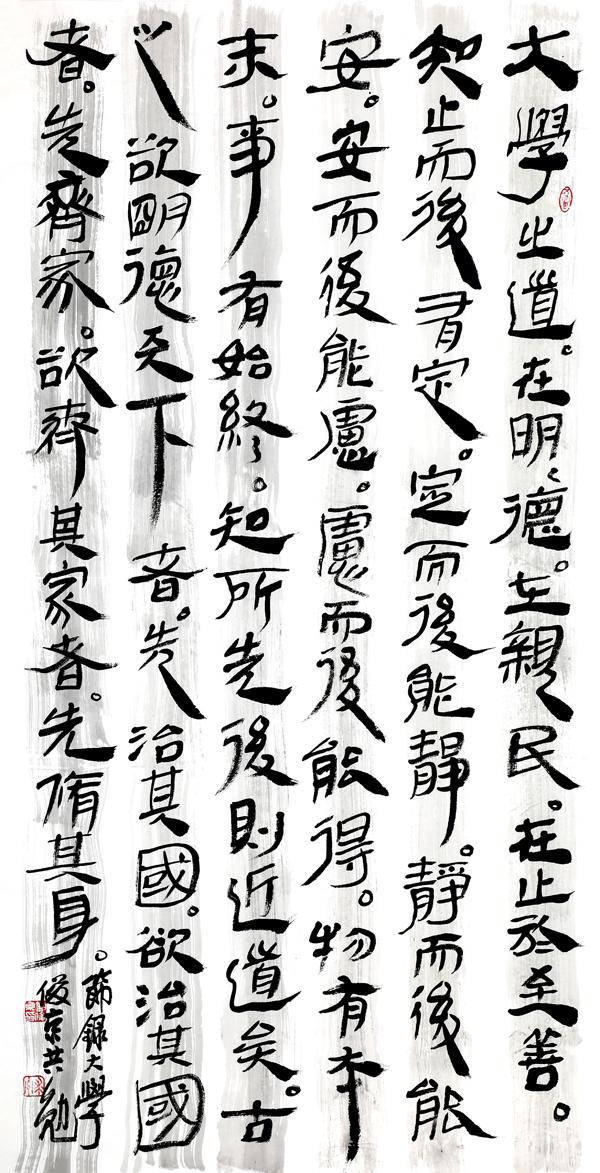 大學之道。在明〻德。在親民。在止於至善。
知止而後有定。定而後能靜。靜而後能
安。安而後能慮。慮而後能得。物有本
末。事有始終。知所先後則近道矣。古
之欲明德天下者。先治其國。欲治其國
者。先齊家。欲齊其家者。先脩其身。
節錄大學
俊京共勉